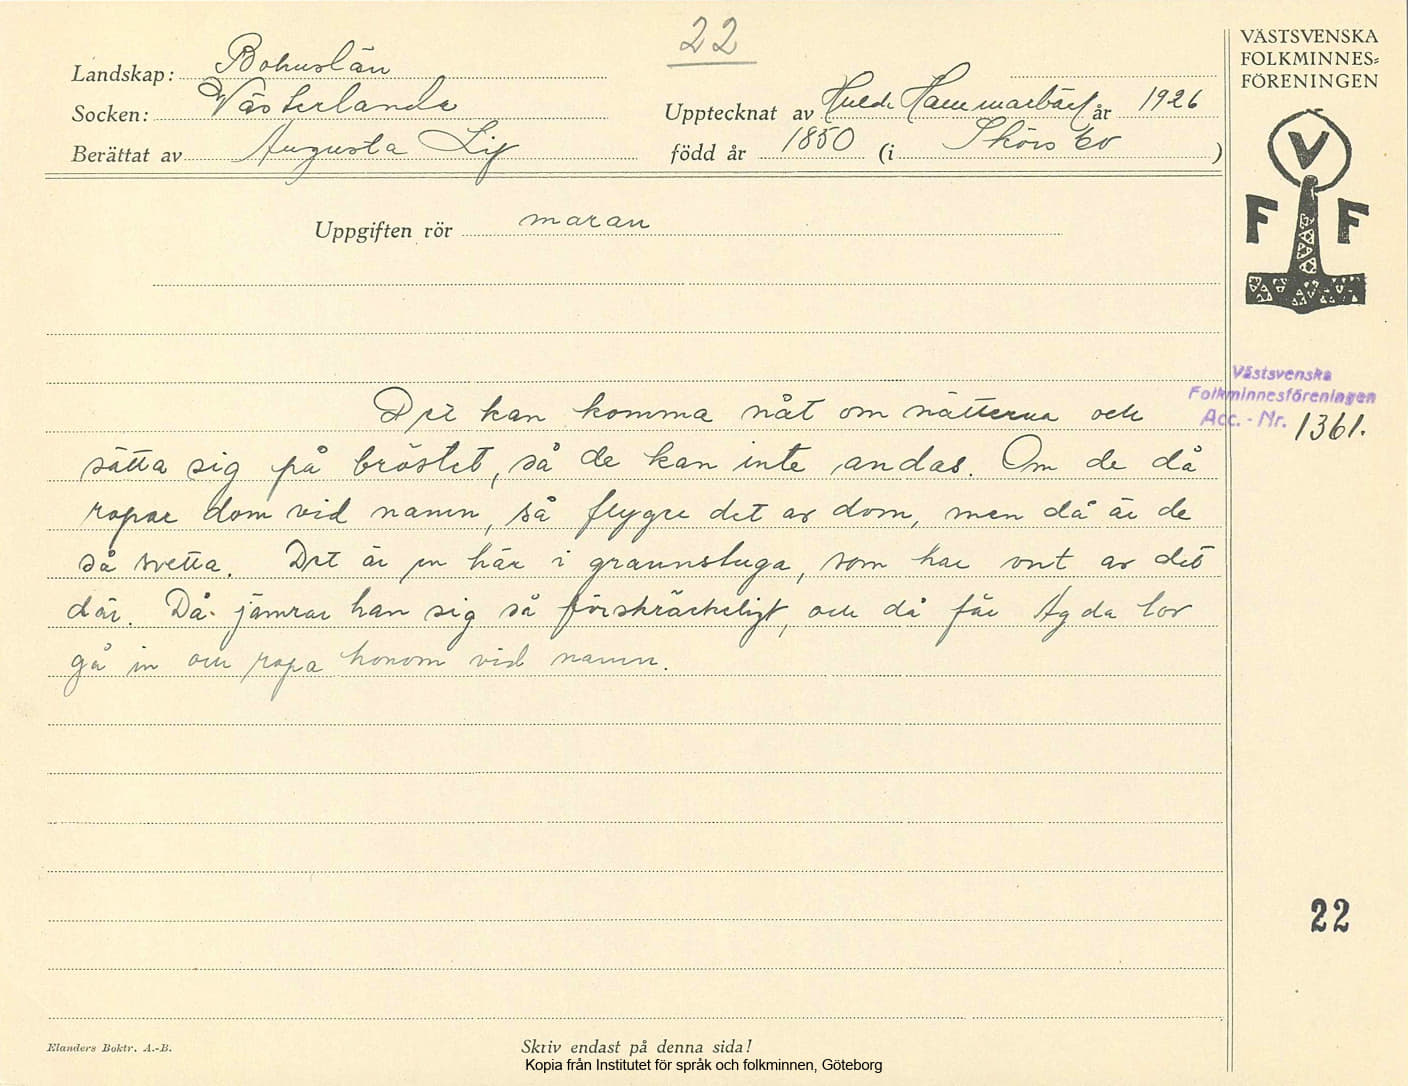 22
Landskap: Bohuslän
Socken: Västerlanda
Upptecknat av Hulda Hammarbäck år 1926
Berättat av Augusta Lij
född år 1850 (i Skörsbo)
Uppgiften rör maran
Det kan komma nåt om nätterna och
sätta sig på bröstet, så de kan inte andas. Om de då
ropar dom vid namn, så flygre det av dom, men då är de
så svetta. Det är en här i grannstuga, som har ont av det
där. Då jämrar han sig så förskräckeligt, och då får Agda lov
gå in och ropa honom vid namn.
VÄSTSVENSKA
FOLKMINNES=
FÖRENINGEN
V
F F
Västsvenska
Folkminnesföreningen
Acc.-Nr. 1361.
22
Elanders Boktr. A.-B.
Skriv endast på denna sida!
Kopia från Institutet för språk och folkminnen, Göteborg